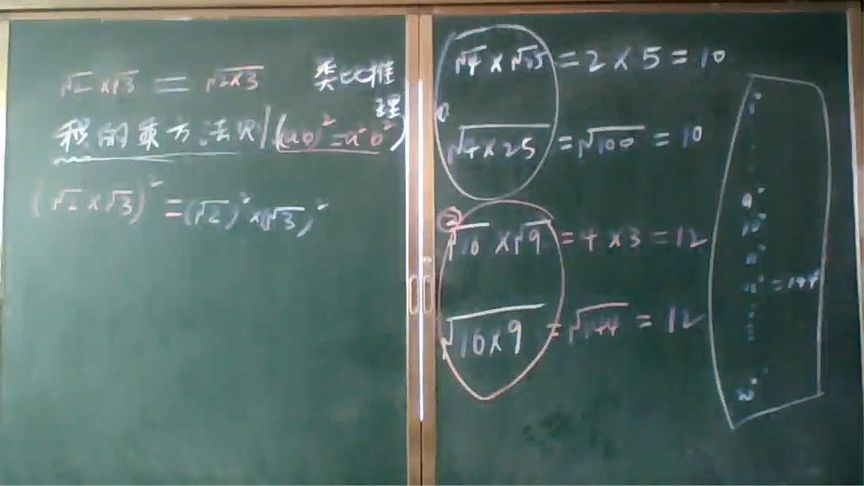 √2 × √3 = √2×3 类比推理
积的乘方法则 (ab)² = a²b²
(√2 × √3)² = (√2)² × (√3)²
√4 × √25 = 2 × 5 = 10
√4×25 = √100 = 10
② √16 × √9 = 4 × 3 = 12
√16×9 = √144 = 12
1²
9²
10²
11²
12² = 144
20²